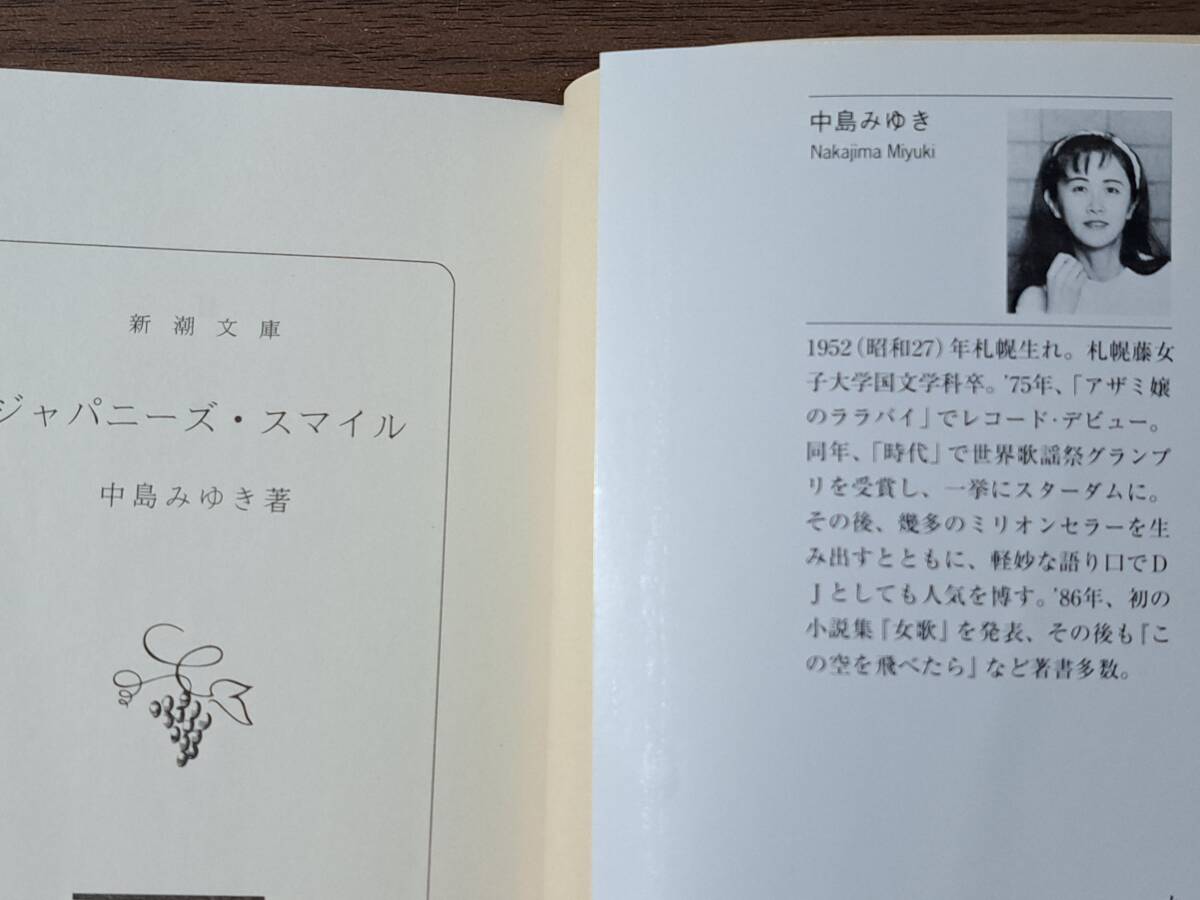 新潮文庫
ジャパニーズ・スマイル
中島みゆき著
中島みゆき
Nakajima Miyuki
1952(昭和27)年札幌生れ。札幌藤女
子大学国文学科卒。'75年、「アザミ嬢
のララバイ」でレコード・デビュー。
同年、「時代」で世界歌謡祭グランプ
リを受賞し、一挙にスターダムに。
その後、幾多のミリオンセラーを生
み出すとともに、軽妙な語り口でD
Jとしても人気を博す。'86年、初の
小説集『女歌』を発表、その後も『こ
の空を飛べたら』など著書多数。